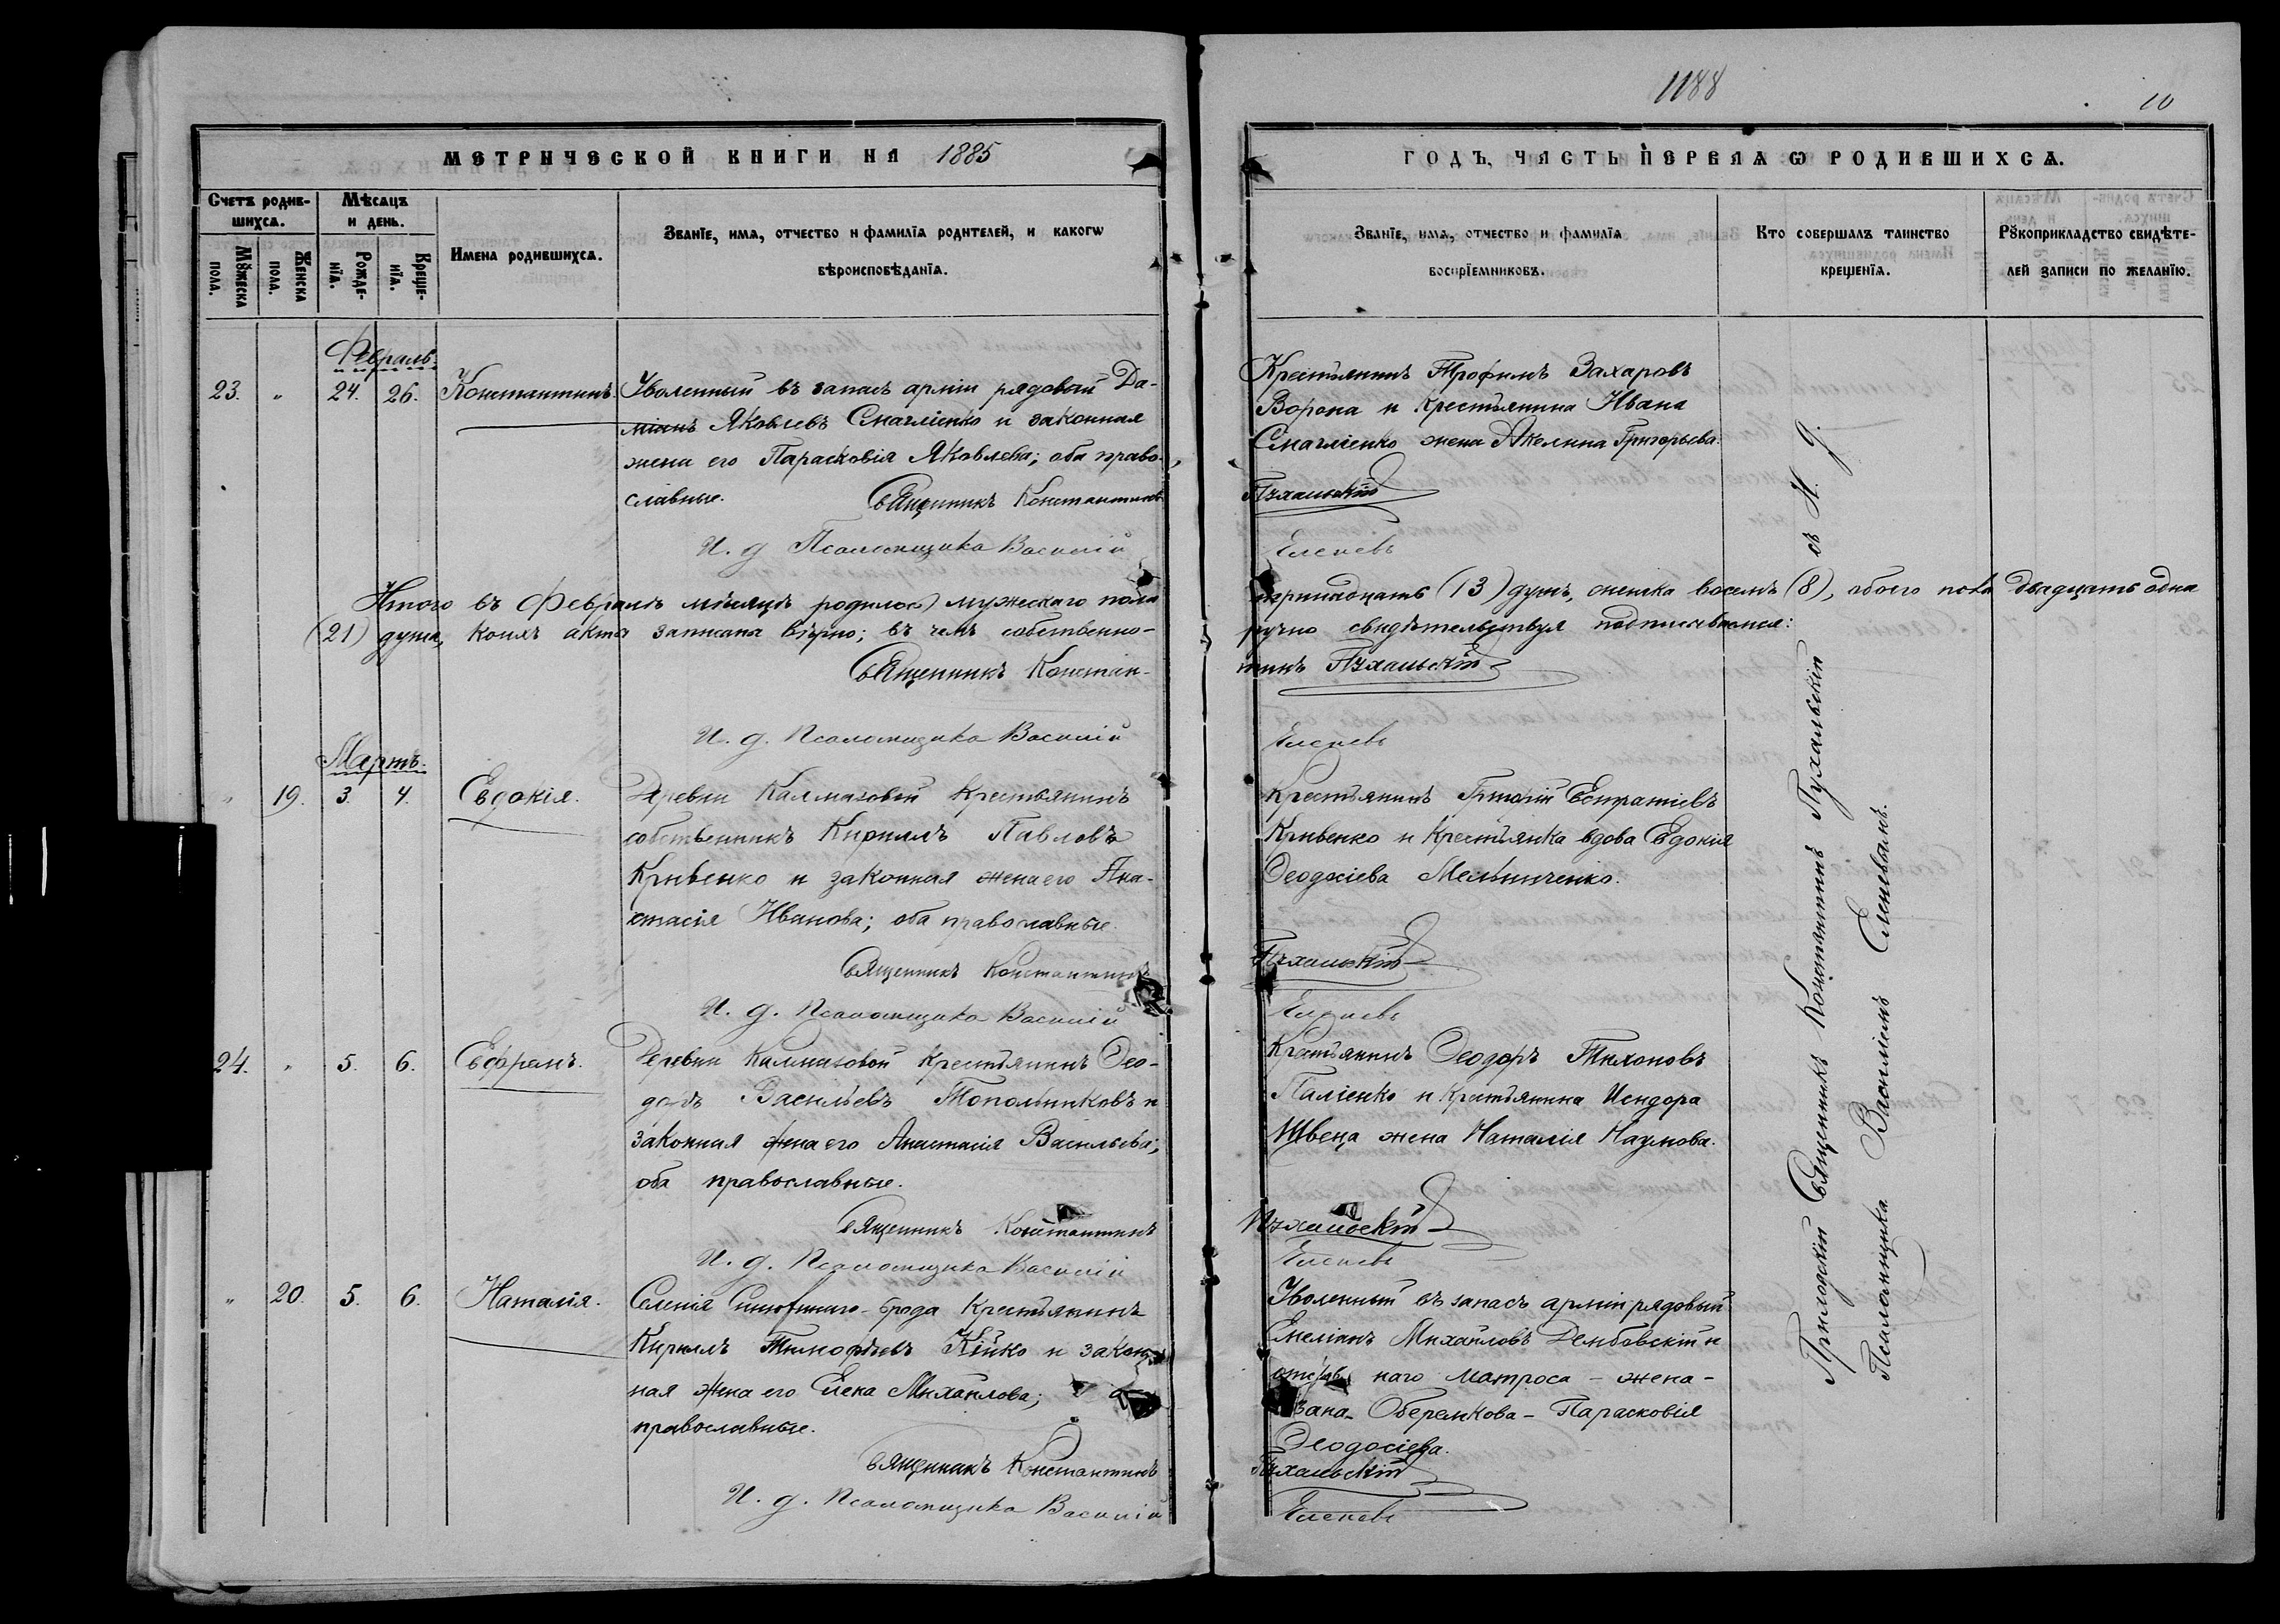 1188
10
МЕТРИЧЕСКОЙ КНИГИ НА 1885
ГОДЪ, ЧАСТЬ ПЕРВАЯ Ѡ РОДИВШИХСѦ.
Счетъ родив-
шихсѧ.
Мѣсѧцъ
и день.
Мꙋжеска
пола.
Женска
пола.
Рожде-
нїѧ.
Креще-
нїѧ.
Имена родившихсѧ.
Званїе, имѧ, отчество и фамилїа родителей, и какогѡ
вѣроисповѣданїѧ.
Званїе, имѧ, отчество и фамилїѧ
воспрїемниковъ.
Кто совершалъ таинство
крещенїѧ.
Рꙋкоприкладство свидѣте-
лей записи по желанїю.
Февраль.
23. " 24. 26. Константинъ
Уволенный въ запасъ арміи рядовый Да-
міанъ Яковлевъ Смагліенко и законная
жена его Парасковія Яковлева; оба право-
славные.
Священникъ Константинъ
И. д. Псаломщика Василій
Крестьянинъ Трофимъ Захаровъ
Ворона и крестьянина Ивана
Смагліенко жена Акелина Григорьева.
Пухальскій
Елепевъ
Итого въ Февралѣ мѣсяцѣ родилось мужескаго пола
тринадцать (13) душъ, женска восемь (8), обоего пола двадцать одна
(21) душа, коихъ акта записана вѣрно; въ чемъ собственно-
ручно свидѣтельствуя подписываемся:
Священникъ Констан-
тинъ Пухальскій
И. д. Псаломщика Василій
Елепевъ
Мартъ.
" 19. 3. 4. Евдокія.
Деревни Калмазовой крестьянинъ
собственникъ Кириллъ Павловъ
Кривенко и законная жена его Ана-
стасія Иванова; оба православные.
Священникъ Константинъ
И. д. Псаломщика Василій
Крестьянинъ Евстратіевъ
Кривенко и крестьянка вдова Евдокія
Ѳеодосіева Мельниченко.
Пухальскій
Елепевъ
24. " 5. 6. Ефремъ.
Деревни Калмазовой крестьянинъ Ѳео-
доръ Васильевъ Топольниковъ и
законная жена его Анастасія Васильева;
оба православные.
Священникъ Константинъ
И. д. Псаломщика Василій
Крестьянинъ Ѳеодоръ Тихоновъ
Паліенко и крестьянина Исидора
Швеца жена Наталія Наумова.
Пухальскій
Елепевъ
" 20. 5. 6. Наталія.
Селенія Синюхинаго-брода крестьянинъ
Кириллъ Тимофѣевъ Кійко и закон-
ная жена его Елена Михайлова;
православные.
Священникъ Константинъ
И. д. Псаломщика Василій
Уволенный въ запасъ арміи рядовый
Емеліанъ Михайловъ Дембовскій и
наго матроса - жена -
Оберемкова - Парасковія
Ѳеодосіева.
Пухальскій
Елепевъ
Приходскій Священникъ Константинъ Пухальскій съ И. д.
Псаломщика Василіемъ